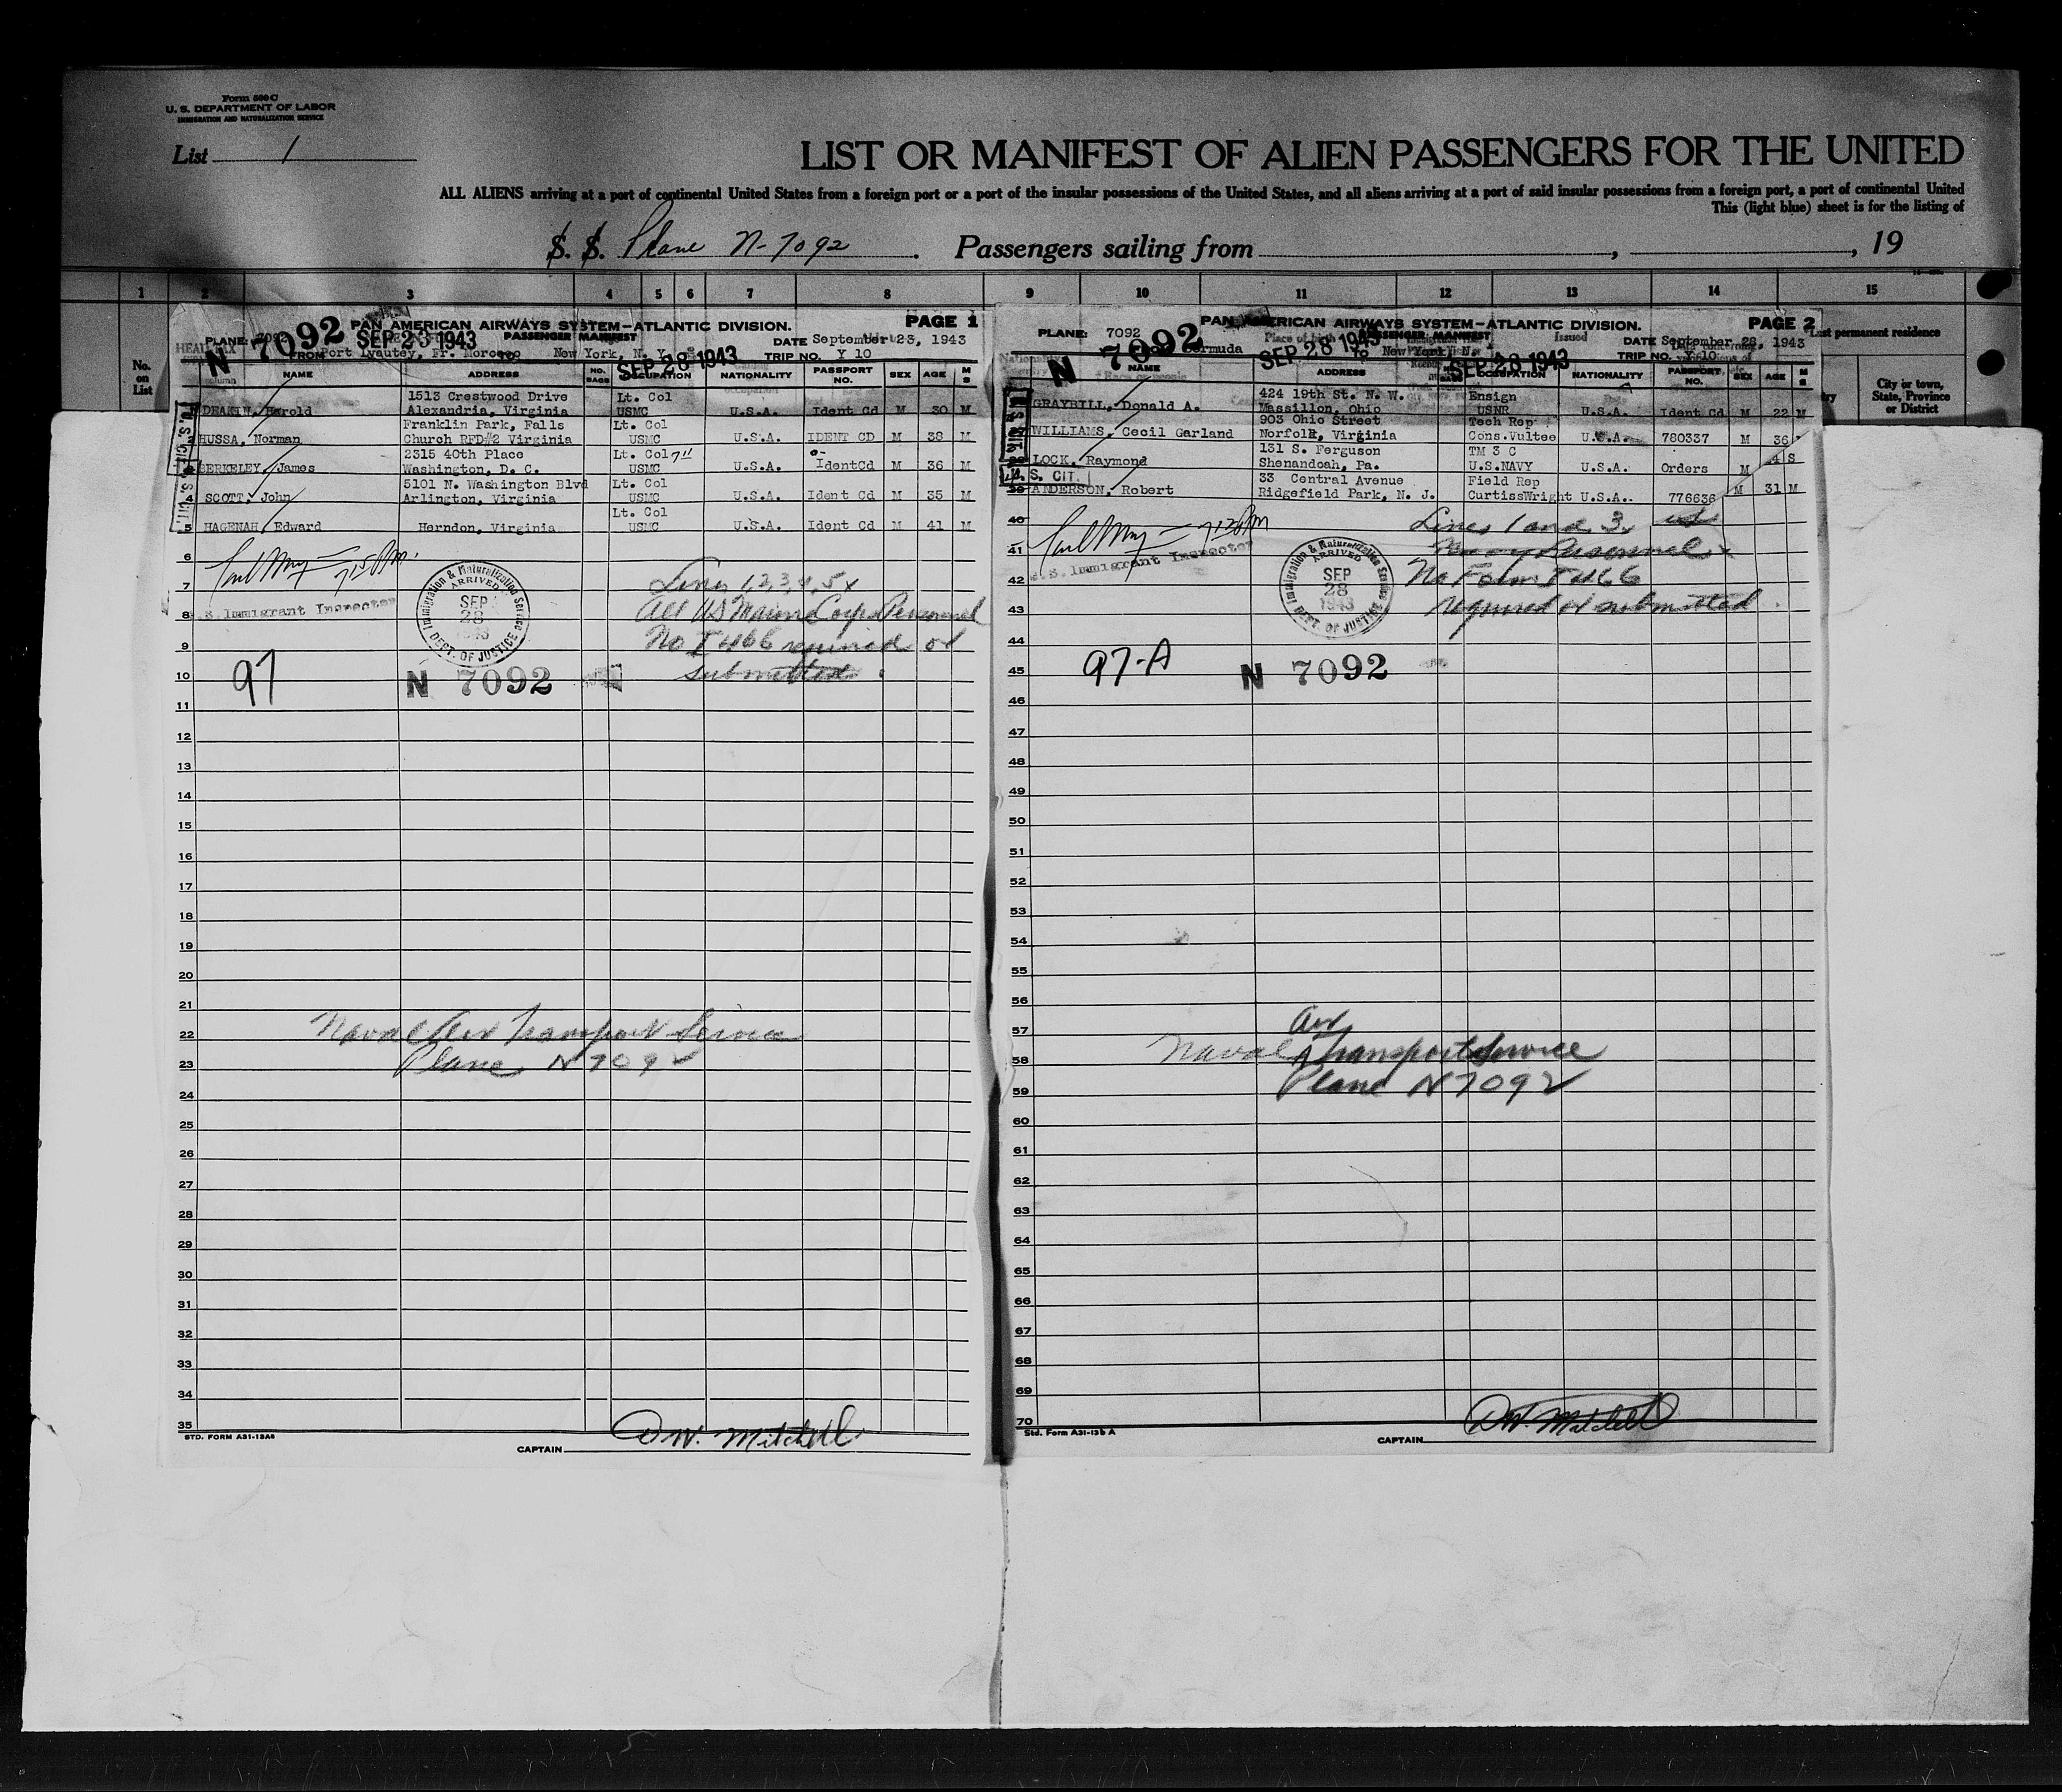 Form 500 C
U. S. DEPARTMENT OF LABOR
IMMIGRATION AND NATURALIZATION SERVICE
List 1
LIST OR MANIFEST OF ALIEN PASSENGERS FOR THE UNITED
ALL ALIENS arriving at a port of continental United States from a foreign port or a port of the insular possessions of the United States, and all aliens arriving at a port of said insular possessions from a foreign port, a port of continental United
This (light blue) sheet is for the listing of
S. S. Plane N-7092. Passengers sailing from , , 19
1 2 3 4 5 6 7 8 9 10 11 12 13 14 15
No. on List
Last permanent residence
City or town, State, Province or District
PAN AMERICAN AIRWAYS SYSTEM—ATLANTIC DIVISION. PAGE 1
PLANE: 7092 N 7092 SEP 28 1943 PASSENGER MANIFEST DATE September 23, 1943
FROM Port Lyautey, Fr. Morocco TO New York, N. Y. SEP 28 1943 TRIP NO. Y 10
NAME ADDRESS NO. BAGS OCCUPATION NATIONALITY PASSPORT NO. SEX AGE M S
1513 Crestwood Drive Lt. Col
DEAKIN, Harold Alexandria, Virginia USMC U.S.A. Ident Cd M 30 M
Franklin Park, Falls Lt. Col
2 HUSSA, Norman Church RFD#2 Virginia USMC U.S.A. IDENT CD M 38 M
2315 40th Place Lt. Col
BERKELEY, James Washington, D. C. USMC U.S.A. IdentCd M 36 M
5101 N. Washington Blvd Lt. Col
4 SCOTT, John Arlington, Virginia USMC U.S.A. Ident Cd M 35 M
Lt. Col
5 HAGENAH, Edward Herndon, Virginia USMC U.S.A. Ident Cd M 41 M
6
7
8
9
10
S. Immigrant Inspector
Immigration & Naturalization Service
ARRIVED
SEP
28
1943
DEPT. OF JUSTICE
Lines 1,2,3,4,5
All US Marine Corp Personnel
No I 466 required or
submitted.
97
N 7092
11
12
13
14
15
16
17
18
19
20
21
22
23
Naval Air Transport Service
Plane N7092
24
25
26
27
28
29
30
31
32
33
34
35
STD. FORM A31-13A4
CAPTAIN D.W. Mitchell
PAN AMERICAN AIRWAYS SYSTEM—ATLANTIC DIVISION. PAGE 2
PLANE: 7092 N 7092 SEP 28 1943 PASSENGER MANIFEST DATE September 28, 1943
Bermuda TO New York N. Y. SEP 28 1943 TRIP NO. Y 10
NAME ADDRESS OCCUPATION NATIONALITY PASSPORT NO. SEX AGE M S
424 19th St. N. W. Ensign
GRAYBILL, Donald A. Massillon, Ohio USNR U.S.A. Ident Cd M 22 M
903 Ohio Street Tech Rep
WILLIAMS, Cecil Garland Norfolk, Virginia Cons.Vultee U.S.A. 780337 M 36
131 S. Ferguson TM 3 C
LOCK, Raymond Shenandoah, Pa. U.S.NAVY U.S.A. Orders M S
U. S. CIT.
33 Central Avenue Field Rep
ANDERSON, Robert Ridgefield Park, N. J. CurtissWright U.S.A. 776636 M 31 M
40
41
42
43
44
45
S. Immigrant Inspector
Immigration & Naturalization Service
ARRIVED
SEP
28
1943
DEPT. OF JUSTICE
Lines 1 and 3, US
Navy Personnel
No Form I 466
required or submitted
97-A
N 7092
46
47
48
49
50
51
52
53
54
55
56
57
58
59
Naval Air Transport Service
Plane N7092
60
61
62
63
64
65
66
67
68
69
70
Std. Form A31-13b A
CAPTAIN D.W. Mitchell